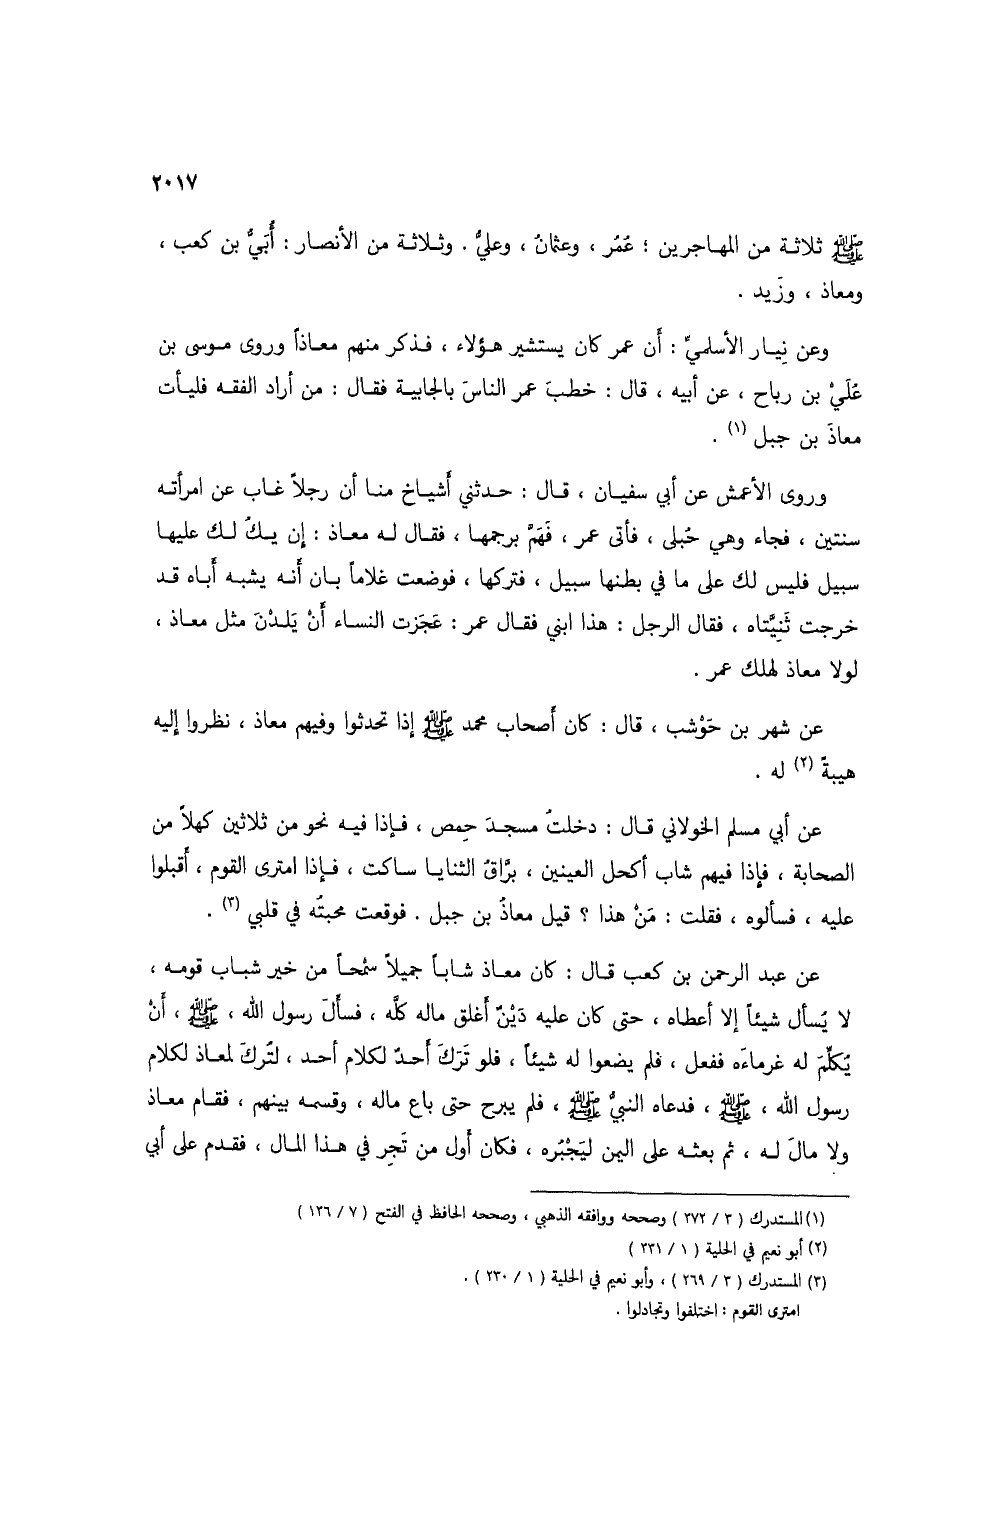 ٢٠١٧
ﷺ ثلاثة من المهاجرين ؛ عُمَر ، وعثمانُ ، وعليٌّ . وثلاثة من الأنصار : أُبَيُّ بن كعب ،
ومعاذ ، وزَيد .
وعن نِيار الأسلميِّ : أَن عمر كان يستشير هؤلاء ، فذكر منهم معاذاً وروى موسى بن
عُلَيْ بن رباح ، عن أبيه ، قال : خطبَ عمر الناسَ بالجابية فقال : من أراد الفقه فليأت
معاذَ بن جبل (١) .
وروى الأعمش عن أبي سفيان ، قال : حدثني أَشياخ منا أن رجلاً غاب عن امرأَته
سنتين ، فجاء وهي حُبلى ، فأتى عمر ، فَهَمَّ برجمها ، فقال له معاذ : إن يكُ لك عليها
سبيل فليس لك على ما في بطنها سبيل ، فتركها ، فوضعت غلاماً بان أَنه يشبه أَباه قد
خرجت ثَنِيَّتاه ، فقال الرجل : هذا ابني فقال عمر : عَجَزت النساء أَنْ يَلدْنَ مثل معاذ ،
لولا معاذ لهلك عمر .
عن شهر بن حَوْشب ، قال : كان أَصحاب محمد ﷺ إذا تحدثوا وفيهم معاذ ، نظروا إليه
هيبةً (٢) له .
عن أبي مسلم الخولاني قال : دخلتُ مسجدَ حِمص ، فإذا فيه نحو من ثلاثين كهلاً من
الصحابة ، فإذا فيهم شاب أكحل العينين ، برَّاقُ الثنايا ساكت ، فإذا امترى القوم ، أَقبلوا
عليه ، فسألوه ، فقلت : مَنْ هذا ؟ قيل معاذُ بن جبل . فوقعت محبتُه في قلبي (٣) .
عن عبد الرحمن بن كعب قال : كان معاذ شاباً جميلاً سَمْحاً من خير شباب قومه ،
لا يُسأل شيئاً إلا أعطاه ، حتى كان عليه دَيْنٌ أَغلق ماله كلَّه ، فسأَلَ رسول الله ، ﷺ ، أَنْ
يُكلِّمَ له غرماءَه ففعل ، فلم يضعوا له شيئاً ، فلو تَرَكَ أَحدٌ لكلام أحد ، لتُركَ لمعاذ لكلام
رسول الله ، ﷺ ، فدعاه النبيُّ ﷺ ، فلم يبرح حتى باع ماله ، وقسمه بينهم ، فقام معاذ
ولا مالَ له ، ثم بعثه على اليمن ليَجْبُره ، فكان أَول من تَجَر في هذا المال ، فقدم على أبي
(١) المستدرك ( ٣ / ٢٧٢ ) وصححه ووافقه الذهبي ، وصححه الحافظ في الفتح ( ٧ / ١٢٦ )
(٢) أبو نعيم في الحلية ( ١ / ٢٣١ )
(٣) المستدرك ( ٣ / ٢٦٩ ) ، وأبو نعيم في الحلية ( ١ / ٢٣٠ ) .
امترى القوم : اختلفوا وتجادلوا .